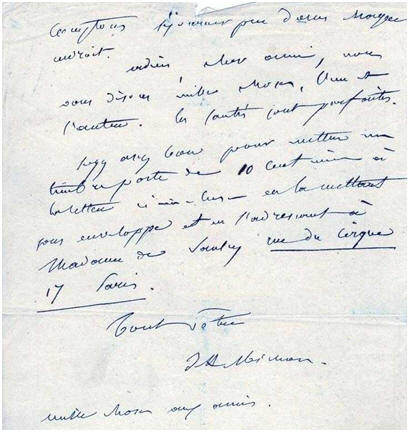 comptons séjourner peu dans chaque
endroit. Adieu cher ami, nous
vous disons mille choses, l'un et
l'autre. Les santés sont parfaites.
Soyez assez bon pour mettre un
timbre poste de 10 centimes à
la lettre ci-incluse en la mettant
sous enveloppe et en l'adressant à
Madame de Saulcy rue du Cirque
17 Paris.
Tout à vous
mille choses aux amis.